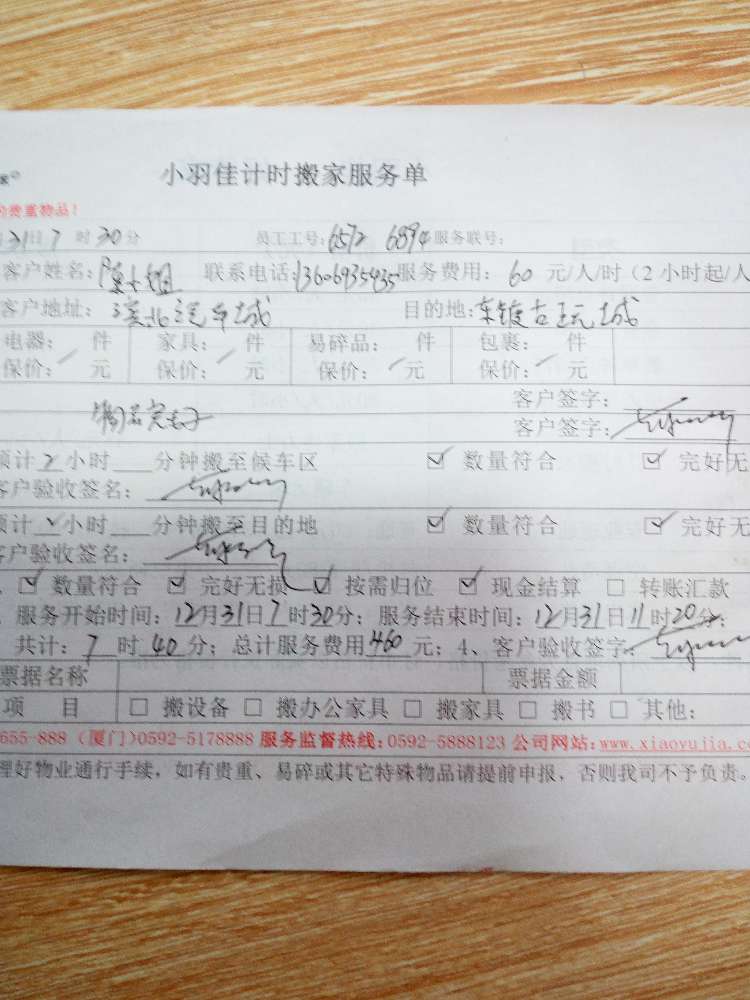 小羽佳计时搬家服务单
的贵重物品！
31日7时30分 员工工号：6572 6894 服务联号：
客户姓名：陈小姐 联系电话：13606935435 服务费用：60元/人/时（2小时起/人
客户地址：汽车城 目的地：古玩城
电器： 件 家具： 件 易碎品： 件 包裹： 件
保价： 元 保价： 元 保价： 元 保价： 元
客户签字：
物品完好 客户签字：
预计2小时 分钟搬至候车区 ☑ 数量符合 ☑ 完好无
客户验收签名：
预计 小时 分钟搬至目的地 ☑ 数量符合 ☑ 完好无
客户验收签名：
☑ 数量符合 ☑ 完好无损 ☑ 按需归位 ☑ 现金结算 □ 转账汇款
服务开始时间：12月31日7时30分；服务结束时间：12月31日11时20分；
共计：7时40分；总计服务费用460元；4、客户验收签字：
票据名称 票据金额
项 目 □ 搬设备 □ 搬办公家具 □ 搬家具 □ 搬书 □ 其他：
655-888（厦门）0592-5178888 服务监督热线：0592-5888123 公司网站：www.xiaoyujia.co
理好物业通行手续，如有贵重、易碎或其它特殊物品请提前申报，否则我司不予负责。